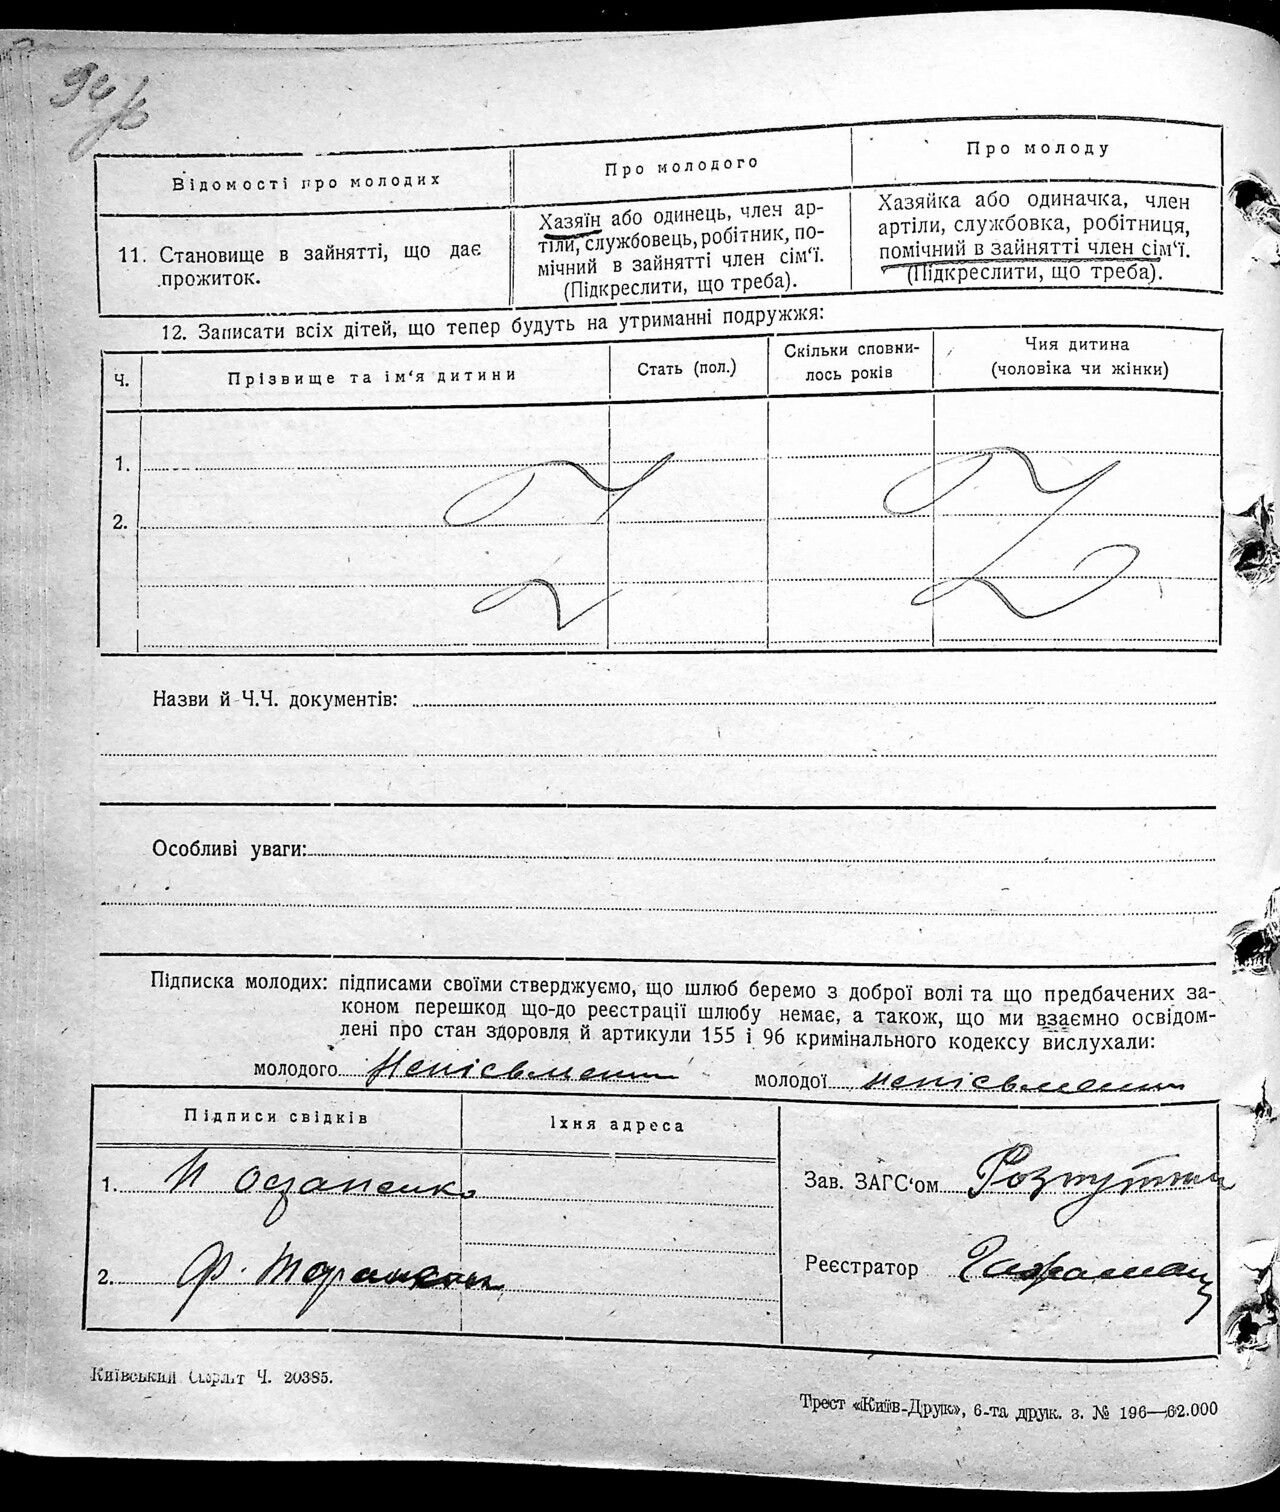 Відомості про молодих
Про молодого
Про молоду
11. Становище в зайнятті, що дає
прожиток.
Хазяїн або одинець, член ар-
тіли, службовець, робітник, по-
мічний в зайнятті член сім'ї.
(Підкреслити, що треба).
Хазяйка або одиначка, член
артіли, службовка, робітниця,
помічний в зайнятті член сім'ї.
(Підкреслити, що треба).
12. Записати всіх дітей, що тепер будуть на утриманні подружжя:
Ч.
Прізвище та ім'я дитини
Стать (пол.)
Скільки сповни-
лось років
Чия дитина
(чоловіка чи жінки)
1.
2.
Назви й Ч.Ч. документів:
Особливі уваги:
Підписка молодих: підписами своїми стверджуємо, що шлюб беремо з доброї волі та що предбачених за-
коном перешкод що-до реєстрації шлюбу немає, а також, що ми взаємно освідом-
лені про стан здоровля й артикули 155 і 96 кримінального кодексу вислухали:
молодого Непісьменни молодої непісьменни
Підписи свідків
Їхня адреса
1. Остапенко
2. Ф.
Зав. ЗАГС'ом
Реєстратор
Київський Ч. 20385.
Трест «Київ-Друк», 6-та друк. з. № 196—62.000